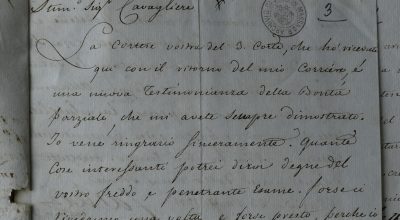 Stim.o Sig.r Cavagliere
3
La Cortese vostra del 3. Corr.e, che hò ricevuta
qui con il ritorno del mio Corriere, è
una nuova Testimonianza della Bontà
parziale che mi avete sempre dimostrato.
Io vene ringrazio sinceramente. Quante
Cose interessanti potrei dirvi degne del
vostro freddo e penetrante Esame. Forse ci
una volta e forse presto perche io